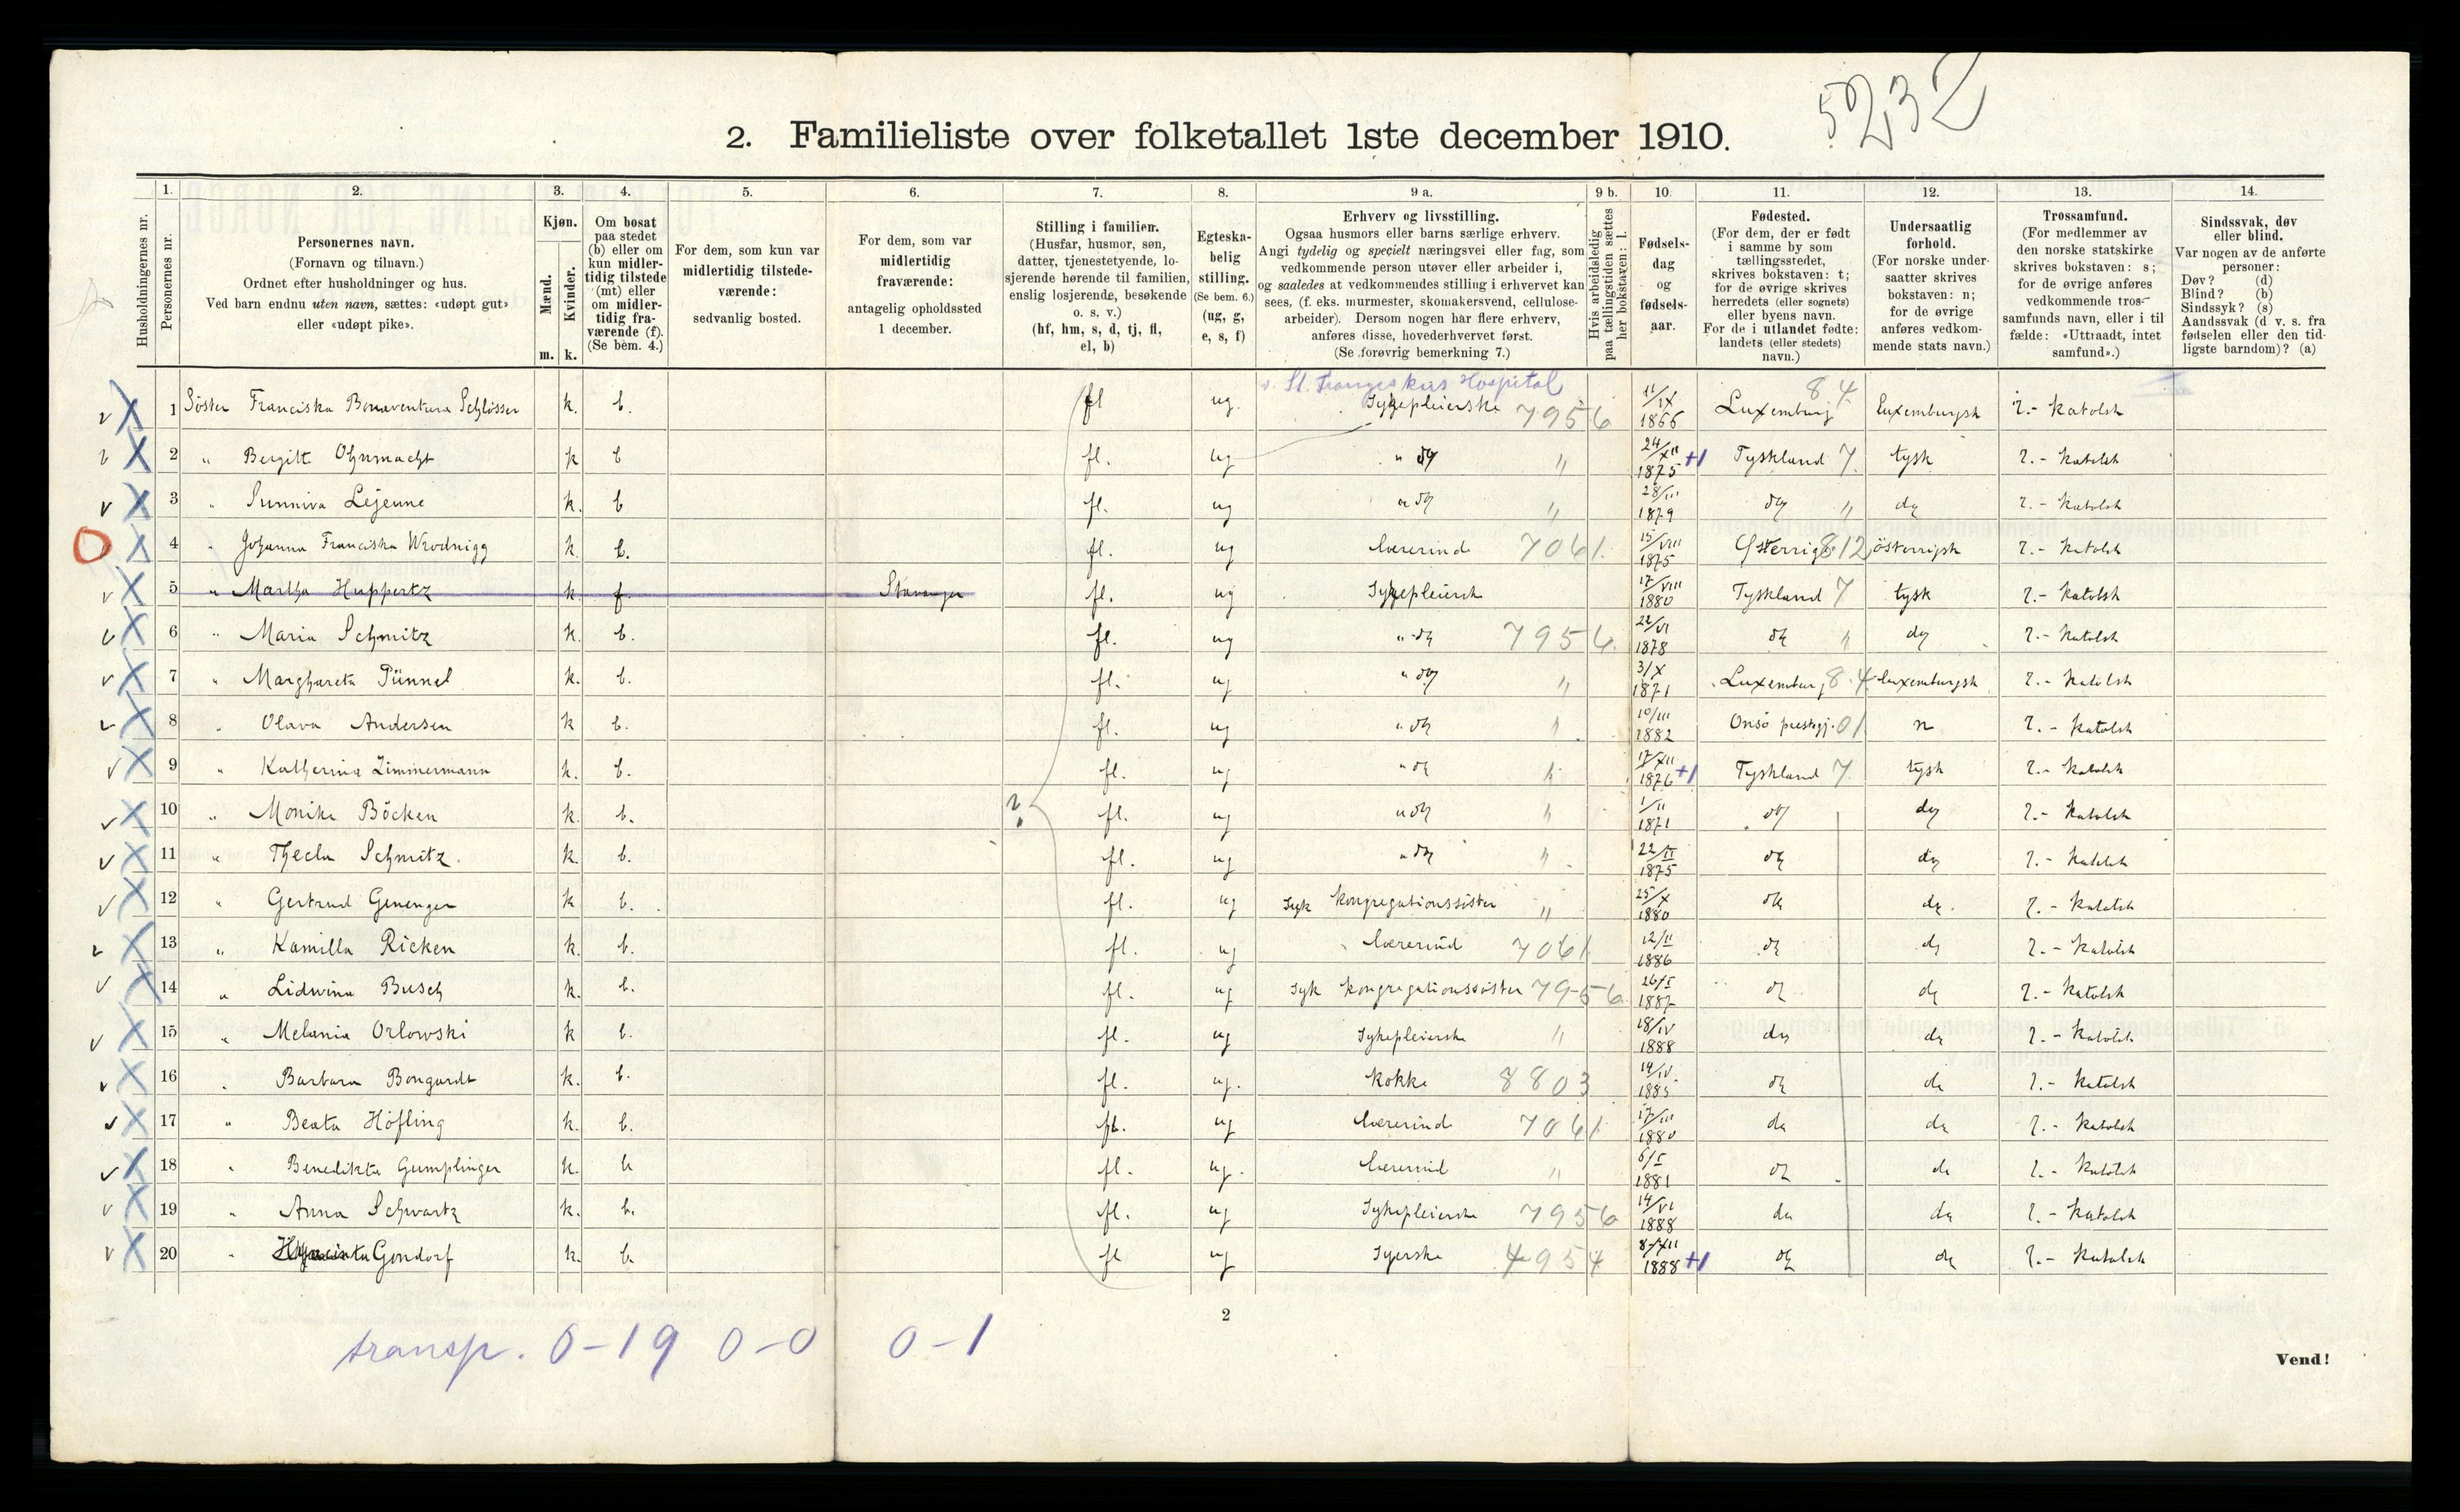 5232
2. Familieliste over folketallet 1ste december 1910.
1. 2. 3. 4. 5. 6. 7. 8. 9 a. 9 b. 10. 11. 12. 13. 14.
Husholdningernes nr.
Personernes nr.
Personernes navn.
(Fornavn og tilnavn.)
Ordnet efter husholdninger og hus.
Ved barn endnu uten navn, sættes: «udøpt gut»
eller «udøpt pike».
Kjøn.
Mænd.
Kvinder.
m. k.
Om bosat
paa stedet
(b) eller om
kun midler-
tidig tilstede
(mt) eller
om midler-
tidig fra-
værende (f).
(Se bem. 4.)
For dem, som kun var
midlertidig tilstede-
værende:
sedvanlig bosted.
For dem, som var
midlertidig
fraværende:
antagelig opholdssted
1 december.
Stilling i familien.
(Husfar, husmor, søn,
datter, tjenestetyende, lo-
sjerende hørende til familien,
enslig losjerende, besøkende
o. s. v.)
(hf, hm, s, d, tj, fl,
el, b)
Egteska-
belig
stilling.
(Se bem. 6.)
(ug, g,
e, s, f)
Erhverv og livsstilling.
Ogsaa husmors eller barns særlige erhverv.
Angi tydelig og specielt næringsvei eller fag, som
vedkommende person utøver eller arbeider i,
og saaledes at vedkommendes stilling i erhvervet kan
sees, (f. eks. murmester, skomakersvend, cellulose-
arbeider). Dersom nogen har flere erhverv,
anføres disse, hovederhvervet først.
(Se forøvrig bemerkning 7.)
Hvis arbeidsledig
paa tællingstiden sættes
her bokstaven: l.
Fødsels-
dag
og
fødsels-
aar.
Fødested.
(For dem, der er født
i samme by som
tællingsstedet,
skrives bokstaven: t;
for de øvrige skrives
herredets (eller sognets)
eller byens navn.
For de i utlandet fødte:
landets (eller stedets)
navn.)
Undersaatlig
forhold.
(For norske under-
saatter skrives
bokstaven: n;
for de øvrige
anføres vedkom-
mende stats navn.)
Trossamfund.
(For medlemmer av
den norske statskirke
skrives bokstaven: s;
for de øvrige anføres
vedkommende tros-
samfunds navn, eller i til
fælde: «Uttraadt, intet
samfund».)
Sindssvak, døv
eller blind.
Var nogen av de anførte
personer:
Døv? (d)
Blind? (b)
Sindssyk? (s)
Aandssvak (d. v. s. fra
fødselen eller den tid-
ligste barndom)? (a)
v. St. Franziskus Hospital
1 Söster Franciska Bonaventura Schlösser k. b. fl ug. Sykepleierske 7956 11/IX 1866 Luxemburg 84 Luxemburgsk r.- katolsk
2 " Bergitt Ohnmacht k b fl. ug " do " 24/XII 1875 +1 Tyskland 7. tysk r.- katolsk
3 " Sunniva Lejeune k. b fl. ug " do " 28/III 1879 do " do r.- katolsk
4 " Johanna Franciska Wrodnigg k. b. fl. ug Lærerinde 7061. 15/VIII 1875 Österrig 812 österrigsk r.- katolsk
5 " Martha Huppertz k f. Stavanger fl. ug Sykepleiersk 17/VIII 1880 Tyskland 7 tysk r.- katolsk
6 " Maria Schmitz k. b. fl. ug " do 7956. 22/VI 1878 do " do r.- katolsk
7 " Marghareta Pünnel k. b. fl. ug " do " 3/X 1871 Luxemburg 8.4 Luxemburgsk r.- katolsk
8 " Olava Andersen k b. fl. ug " do " 10/III 1882 Onsö prestgj. 01 n r.- katolsk
9 " Katherina Zimmermann k. b. fl. ug " do " 17/XII 1876 +1 Tyskland 7. tysk r.- katolsk
10 " Monika Böcken k. b. ? fl. ug " do " 1/II 1871 do do r.- katolsk
11 " Thecla Schmitz. k. b. fl. ug " do " 22/II 1875 do do r.- katolsk
12 " Gertrud Genenger k b. fl. ug Syk kongregationssöster " 25/X 1880 do do. r.- katolsk
13 " Kamilla Ricken k. b. fl. ug Lærerind 7061 12/II 1886 do do r.- katolsk
14 " Lidwina Busch k. b. fl. ug Syk kongregationssöster 7956. 26/I 1887 do do r.- katolsk
15 " Melania Orlowski k b. fl. ug Sykepleierske " 18/IV 1888 do do r.- katolsk
16 " Barbara Bongardt k. b. fl. ug. Kokke 8803 14/IV 1885 do do r.- katolsk
17 " Beata Höfling k. b. fl. ug Lærerind 7061. 17/III 1880 do do r.- katolsk
18 " Benedikta Gumplinger k. b fl. ug. Lærerind " 6/I 1881 do do r.- katolsk
19 " Anna Schwartz k. b. fl. ug Sykepleierske 7956 14/VI 1888 do do r.- katolsk
20 " Hyacinta Gondorf k. b. fl ug Syerske 4954 8/XII 1888 +1 do do r.- katolsk
2
transp. 0-19 0-0 0-1
Vend!